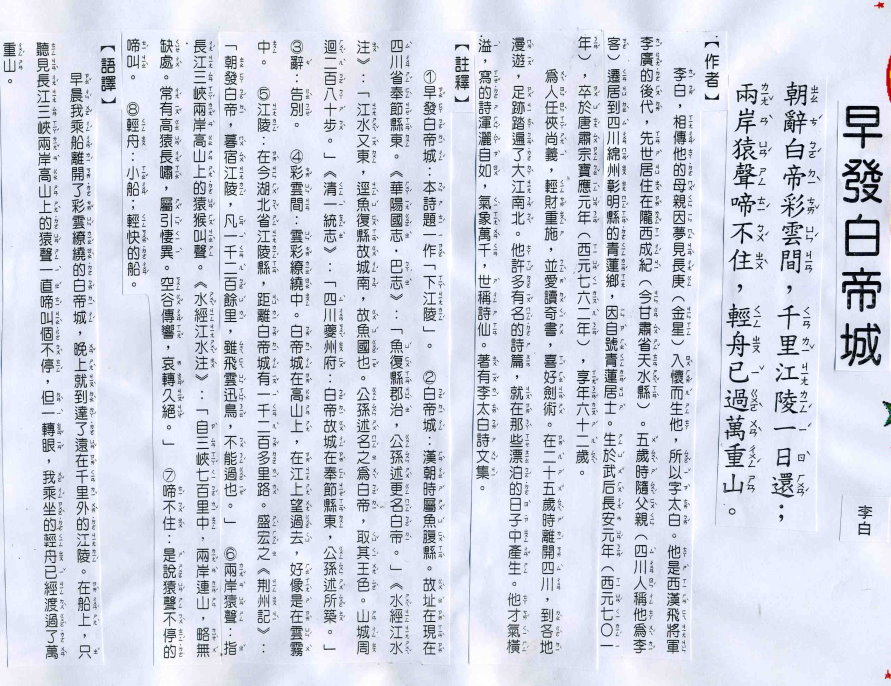 早發白帝城
李白
朝辭白帝彩雲間，千里江陵一日還；
兩岸猿聲啼不住，輕舟已過萬重山。
【作者】
李白，相傳他的母親因夢見長庚（金星）入懷而生他，所以字太白。他是西漢飛將軍
李廣的後代，先世居住在隴西成紀（今甘肅省天水縣）。五歲時隨父親（四川人稱他為李
客）遷居到四川綿州彰明縣的青蓮鄉，因自號青蓮居士。生於武后長安元年（西元七０一
年），卒於唐肅宗寶應元年（西元七六二年），享年六十二歲。
為人任俠尚義，輕財重施，並愛讀奇書，喜好劍術。在二十五歲時離開四川，到各地
漫遊，足跡踏遍了大江南北。他許多有名的詩篇，就在那些漂泊的日子中產生。他才氣橫
溢，寫的詩渾灑自如，氣象萬千，世稱詩仙。著有李太白詩文集。
【註釋】
①早發白帝城：本詩題一作「下江陵」。 ②白帝城：漢朝時屬魚腹縣。故址在現在
四川省奉節縣東。《華陽國志．巴志》：「魚復縣郡治，公孫述更名白帝。」《水經江水
注》：「江水又東，逕魚復縣故城南，故魚國也。公孫述名之為白帝，取其王色。山城周
迴二百八十步。」《清一統志》：「四川夔州府：白帝故城在奉節縣東，公孫述所築。」
③辭：告別。 ④彩雲間：雲彩繚繞中。白帝城在高山上，在江上望過去，好像是在雲霧
中。 ⑤江陵：在今湖北省江陵縣，距離白帝城有一千二百多里路。盛宏之《荆州記》：
「朝發白帝，暮宿江陵，凡一千二百餘里，雖飛雲迅鳥，不能過也。」 ⑥兩岸猿聲：指
長江三峽兩岸高山上的猿猴叫聲。《水經江水注》：「自三峽七百里中，兩岸連山，略無
缺處。常有高猿長嘯，屬引悽異。空谷傳響，哀轉久絕。」 ⑦啼不住：是說猿聲不停的
啼叫。 ⑧輕舟：小船；輕快的船。
【語譯】
早晨我乘船離開了彩雲繚繞的白帝城，晚上就到達了遠在千里外的江陵。在船上，只
聽見長江三峽兩岸高山上的猿聲一直啼叫個不停，但一轉眼，我乘坐的輕舟已經渡過了萬
重山。